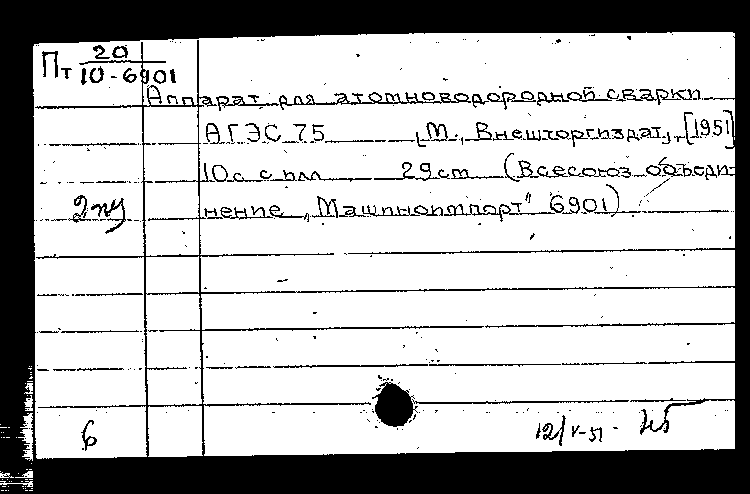 Пт 20
10-6901
Аппарат для атомноводородной сварки
АГЭС 75 [М., Внешторгиздат], [1951]
10с с илл 29 cm (Всесоюз объеди-
нение „Машиноимпорт" 6901)
2
6 12/V-51